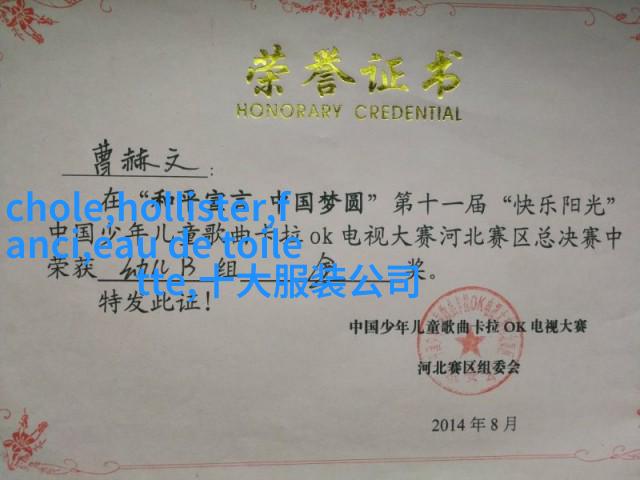 荣誉证书
HONORARY CREDENTIAL
曹赫文:
在“和平宣言 中国梦圆”第十一届“快乐阳光”
chole,hollister,f
中国少年儿童歌曲卡拉ok电视大赛河北赛区总决赛中
anci,eau de toile
荣获 幼儿B 组 金 奖。
tte,十大服装公司
特发此证!
中国少年儿童歌曲卡拉OK电视大赛
河北赛区组委会
2014年8月